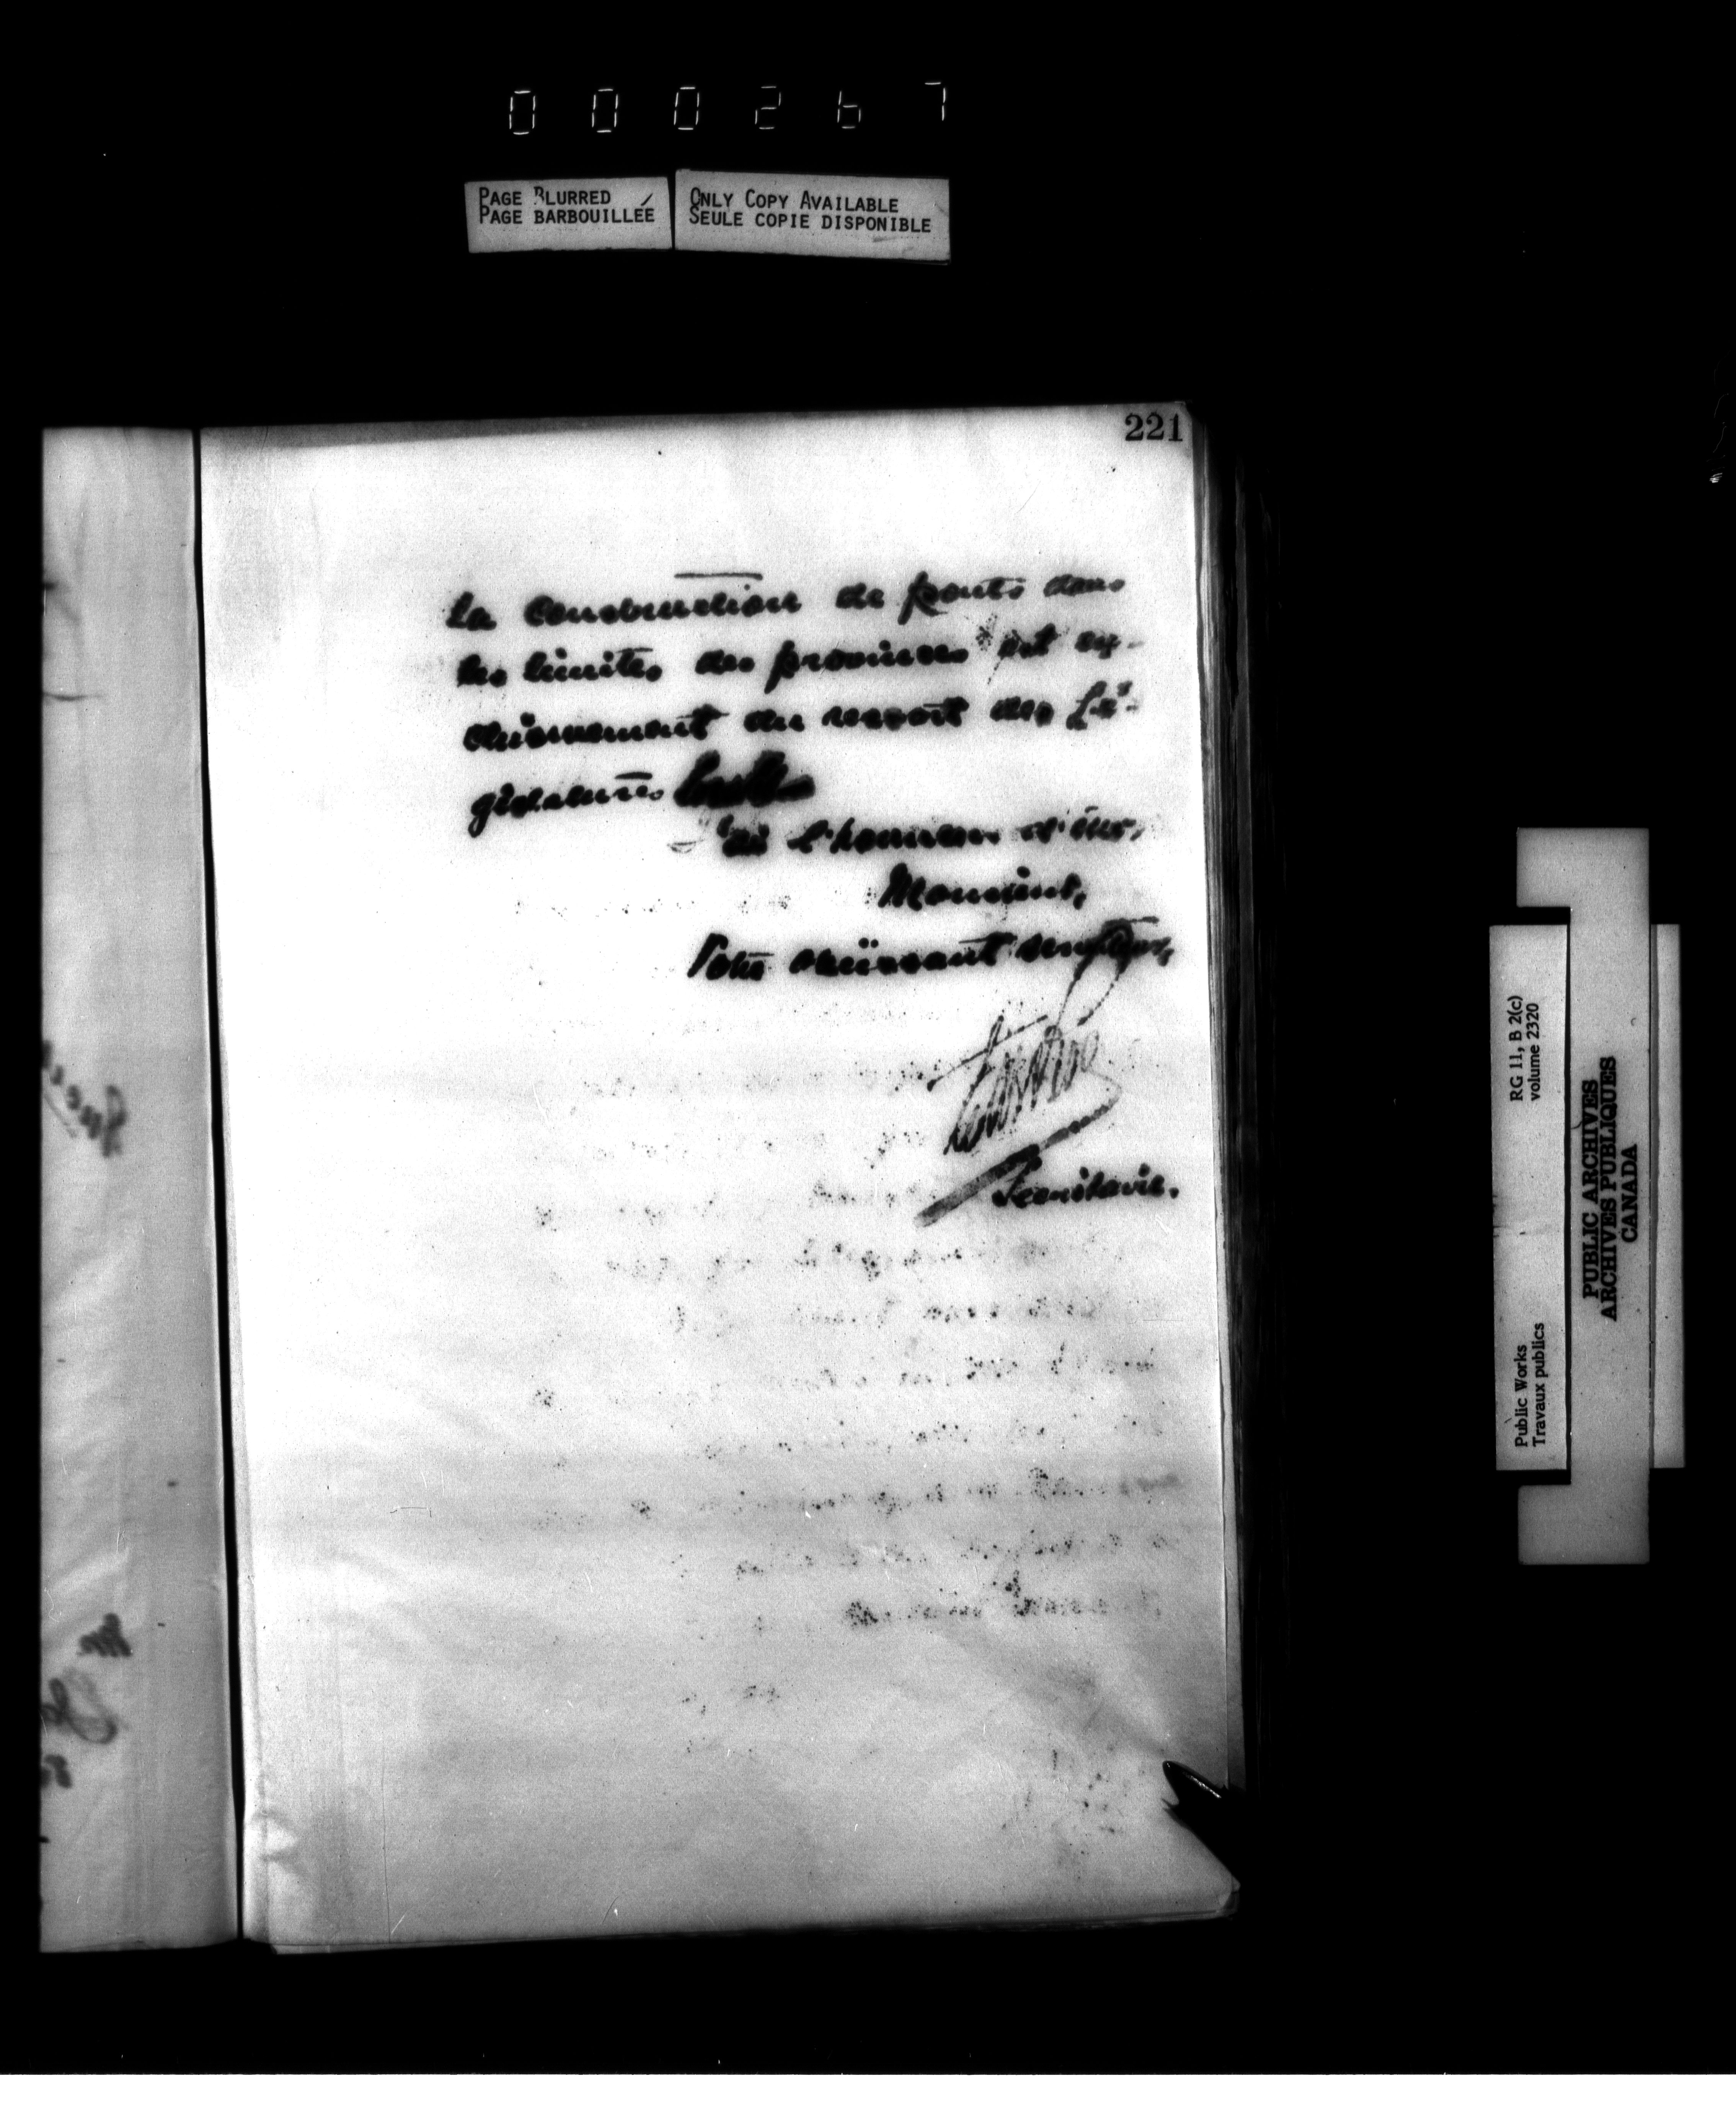 000267
PAGE BLURRED
PAGE BARBOUILLÉE
ONLY COPY AVAILABLE
SEULE COPIE DISPONIBLE
221
La construction de ponts dans
les limites des provinces est ex-
clusivement du ressort des Lé-
gislatures
J'ai l'honneur d'être,
Monsieur,
Votre obéissant serviteur,
Secrétaire.
RG 11, B 2(c)
volume 2320
Public Works
Travaux publics
PUBLIC ARCHIVES
ARCHIVES PUBLIQUES
CANADA